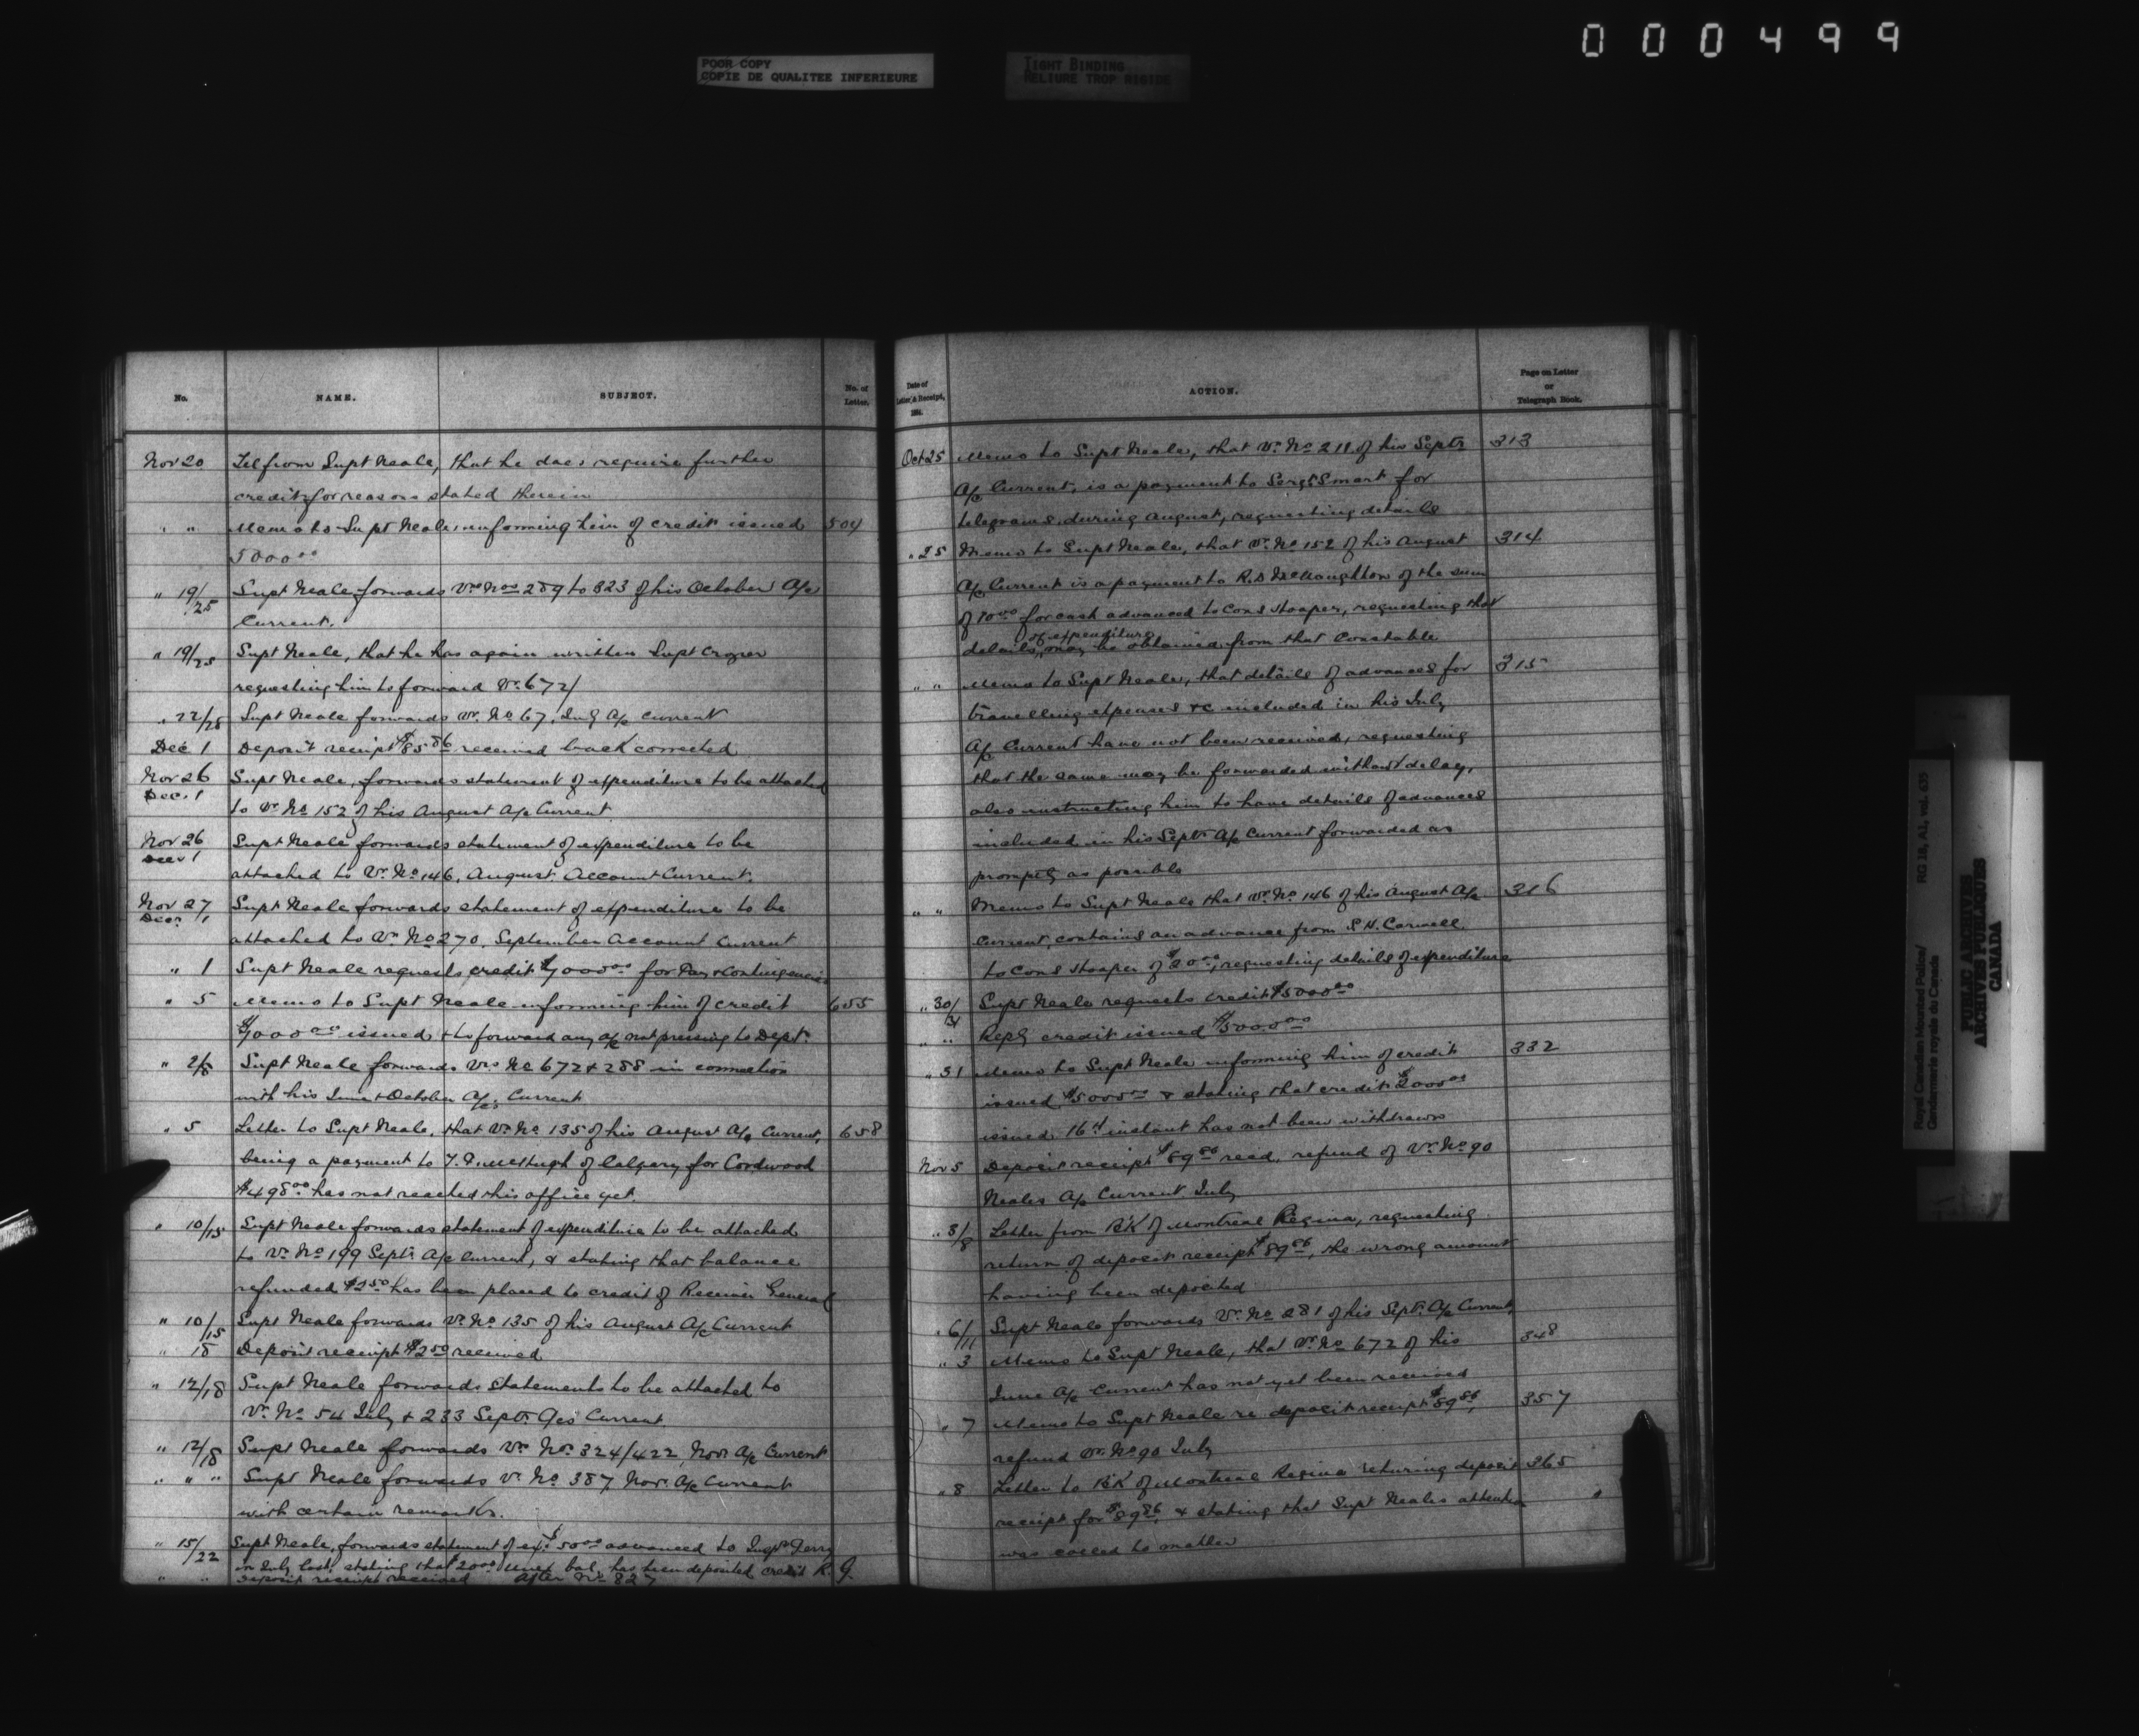 000499
POOR COPY
COPIE DE QUALITEE INFERIEURE
TIGHT BINDING
RELIURE TROP RIGIDE
No.
NAME.
SUBJECT.
No. of
Letter.
Nov 20 Tel from Supt Neale, that he does require further
credit for reasons stated therein
" " Memo to Supt Neale, informing him of credit issued 504
5000 00
" 19/25 Supt Neale forwards Vrs Nos 289 to 323 of his October A/c
Current.
" 19/25 Supt Neale, that he has again written Supt Crozier
requesting him to forward Vr. 672/
" 22/28 Supt Neale forwards Vr. No 67, July A/c Current
Dec 1 Deposit receipt $85 86 received back corrected
Nov 26 Supt Neale, forwards statement of expenditure to be attached
Dec. 1
to Vr No 152 of his August A/c Current.
Nov 26 Supt Neale forwards statement of expenditure to be
Dec 1
attached to Vr. No 146, August. Account Current.
Nov 27 Supt Neale forwards statement of expenditure to be
Decr. 1
attached to Vr No 270, September Account Current
" 1 Supt Neale requests credit $7000 00 for Pay & Contingencies
" 5 Memo to Supt Neale informing him of credit 655
$7000 00 issued & to forward any a/c not pressing to Dept.
" 2/8 Supt Neale forwards Vrs No 672 & 288 in connection
with his June & October A/cs Current
" 5 Letter to Supt Neale, that Vr. No 135 of his August A/c Current, 658
being a payment to McHugh of Calgary for Cordwood
$498 00 has not reached this office yet.
" 10/15 Supt Neale forwards statement of expenditure to be attached
to Vr. No 199 Septr. A/c Current, & stating that balance
refunded $2 50 has been placed to credit of Receiver General
" 10/15 Supt Neale forwards Vr. No 135 of his August A/c Current
" 18 Deposit receipt $2 50 received
" 12/18 Supt Neale forwards statements to be attached to
Vr. No 54 July & 233 Septr. A/cs Current
" 12/18 Supt Neale forwards Vr. No. 324/422, Nov. A/c Current
" " " Supt Neale forwards Vr. No. 387 Nov. A/c Current
with certain remarks.
" 15/22 Supt Neale, forwards statement of ex. $50 00 advanced to Inspr Perry
in July last, stating that $20 00 bal. has been deposited credit R. G.
" " Deposit receipt received After No 827
Date of
Letter, & Receipt,
188 .
ACTION.
Page on Letter
or
Telegraph Book.
Oct 25 Memo to Supt Neale, that Vr. No 211 of his Septr 313
A/c Current, is a payment to Sergt Smart for
telegrams, during August, requesting details
" 25 Memo to Supt Neale, that Vr. No 152 of his August 314
A/c Current is a payment to R.D McNaughton of the sum
of 10 00 for cash advanced to Cons Hooper, requesting that
of expenditure
details may be obtained from that Constable
" " Memo to Supt Neale, that details of advances for 315
travelling expenses &c included in his July
A/c Current have not been received, requesting
that the same may be forwarded without delay,
also instructing him to have details of advances
included in his Septr A/c Current forwarded as
promptly as possible
" " Memo to Supt Neale that Vr. No 146 of his August A/c 316
Current, contains an advance from S.H. Carwell
to Cons Hooper of $20 00, requesting details of expenditure
" 30/31 Supt Neale requests credit $5000 00
" " Reply credit issued $5000 00
" 31 Memo to Supt Neale informing him of credit 332
issued $5000 00 & stating that credit $2000 00
issued 16th instant has not been withdrawn
Nov 5 Deposit receipt $89 86 recd. refund of Vr. No 90
Neales A/c Current July
" 5/8 Letter from B'K of Montreal Regina, requesting
return of deposit receipt $89 86, the wrong amount
having been deposited
" 6/11 Supt Neale forwards Vr. No 281 of his Sept. A/c Current,
" 3 Memo to Supt Neale, that Vr. No 672 of his 348
June A/c Current has not yet been received
" 7 Memo to Supt Neale re deposit receipt $89 86, 357
refund Vr. No 90 July
" 8 Letter to B'K of Montreal Regina returing deposit 365
receipt for $89 86, & stating that Supt Neales attention
was called to matter
Royal Canadian Mounted Police/
Gendarmerie royale du Canada
RG 18, A1, vol. 635
PUBLIC ARCHIVES
ARCHIVES PUBLIQUES
CANADA